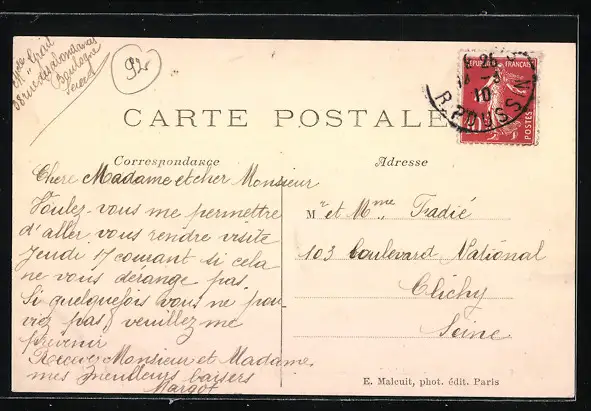 38 rue des abondances
Boulogne
Seine
92
CARTE POSTALE
Correspondance
Adresse
Chere Madame et cher Monsieur
Voulez-vous me permettre
d'aller vous rendre visite
Jeudi 17 courant si cela
ne vous dérange pas.
Si quelquefois vous ne pou-
viez pas, veuillez me
prévenir
Recevez Monsieur et Madame,
mes meilleurs baisers
Margot
Mr et Mme Fradié
103 boulevard National
Clichy
Seine
RÉPUBLIQUE FRANÇAISE
10
POSTES
R. POUSSIN
E. Malcuit, phot. édit. Paris